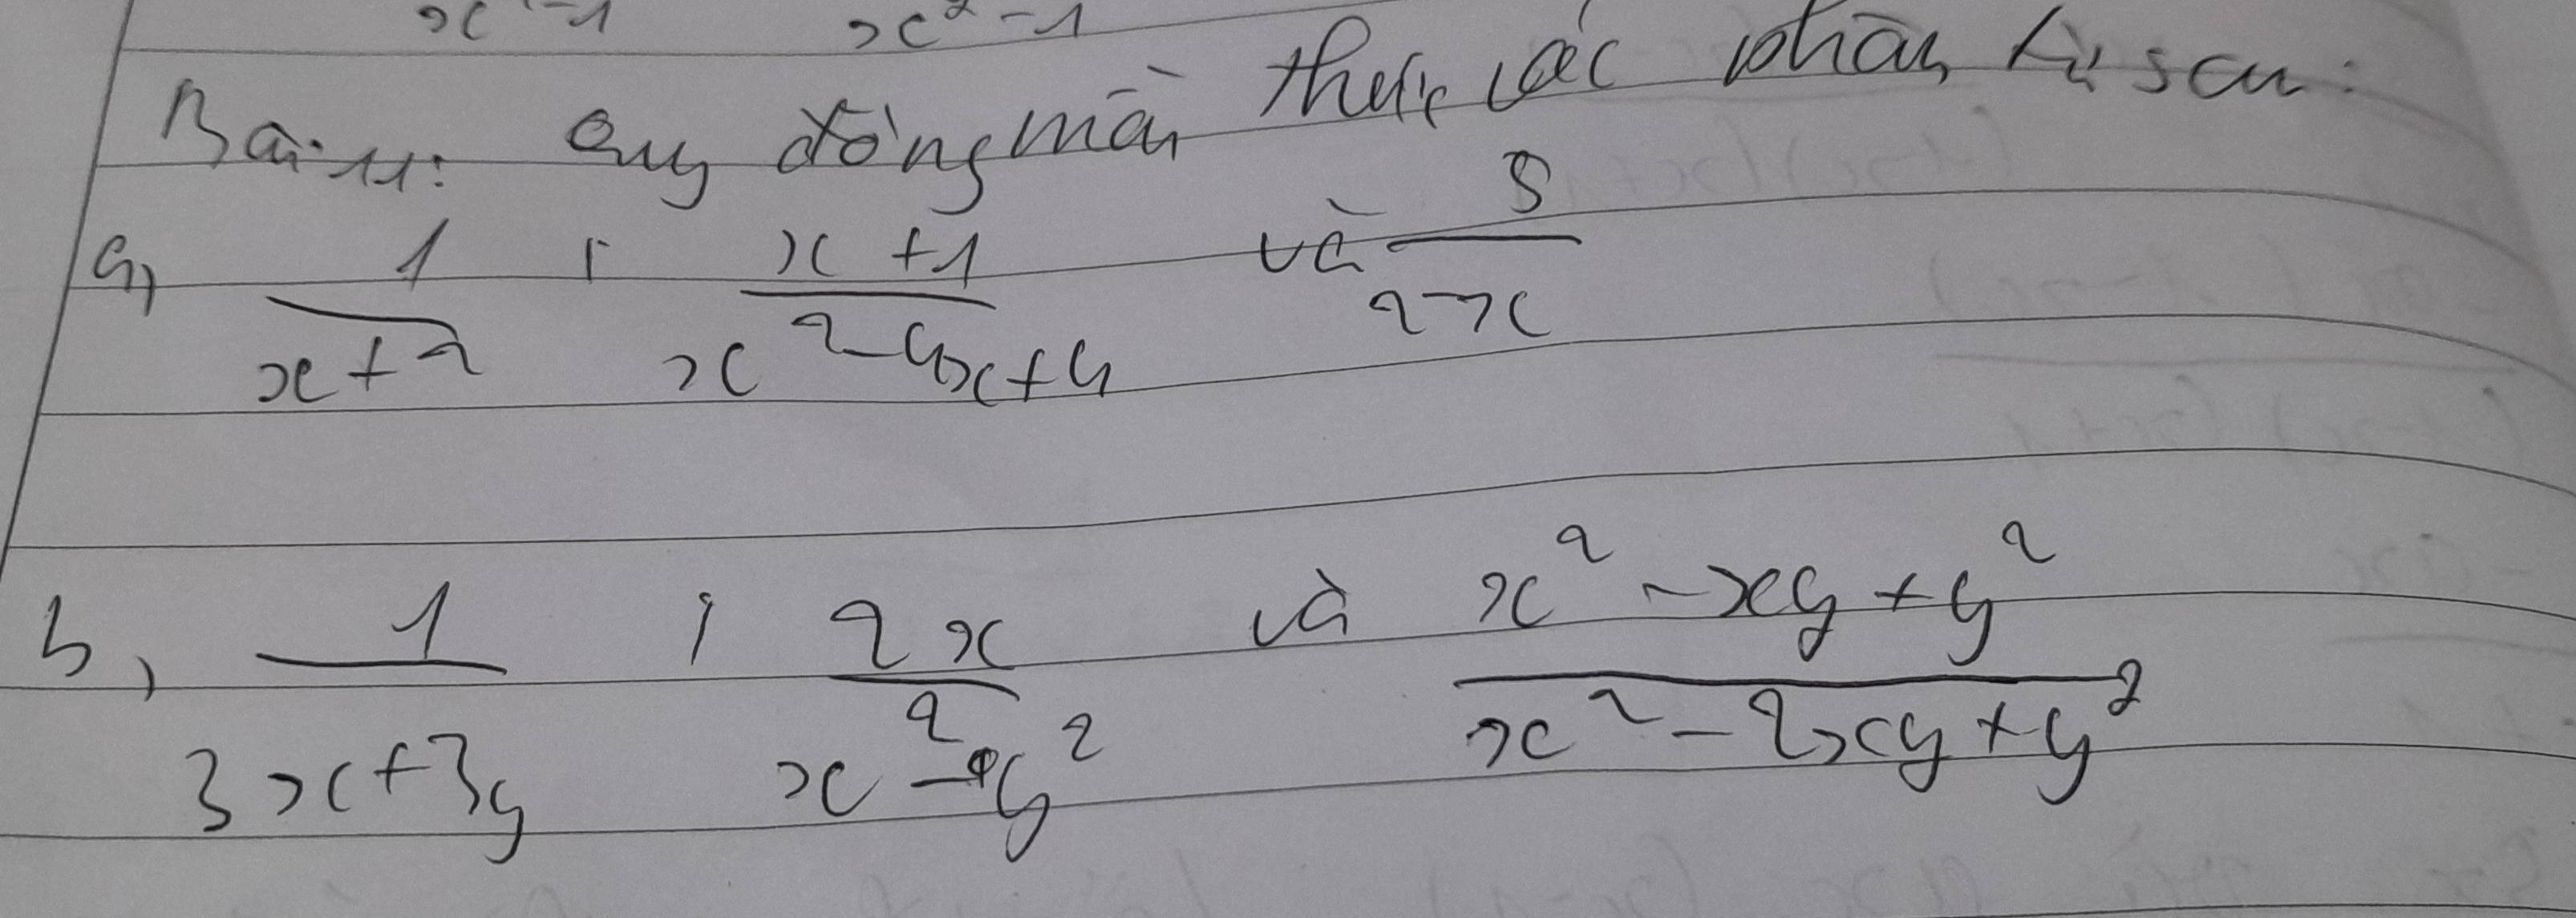 x² - 1 x² - 1
Bài 11: Quy đồng mẫu thức các phân tử sau:
a, 1/(x+2) ; (x+1)/(x²-4x+4) và 5/(2-x)
b, 1/(3x+3y) ; 2x/(x²-y²) và (x²-xy+y²)/(x²-2xy+y²)